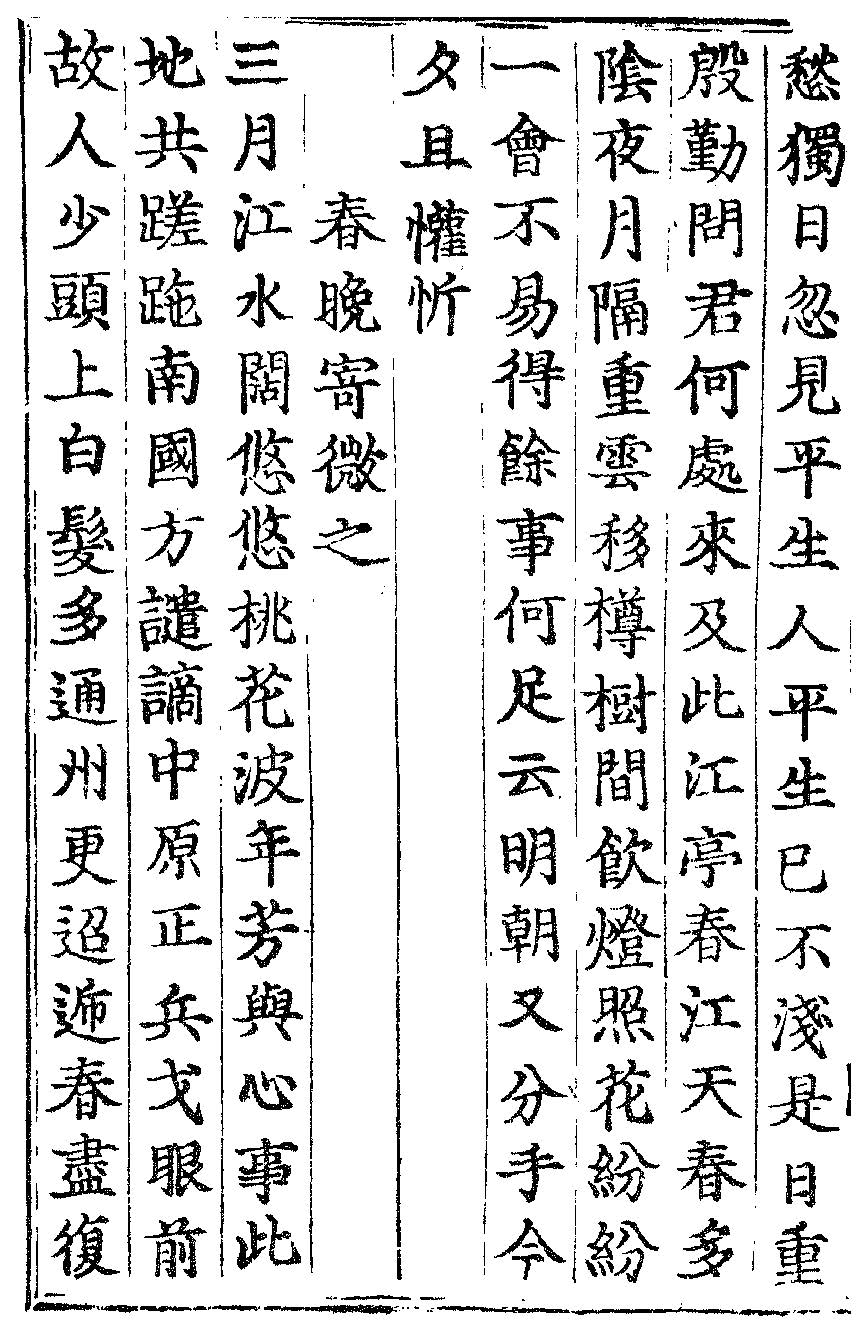 愁獨日忽見平生人平生已不淺是日重
殷勤問君何處來及此江亭春江天春多
陰夜月隔重雲移樽樹間飲燈照花紛紛
一會不易得餘事何足云明朝又分手今
夕且懽忻
春晚寄微之
三月江水闊悠悠桃花波年芳與心事此
地共蹉跎南國方譴謫中原正兵戈眼前
故人少頭上白髮多通州更迢遞春盡復